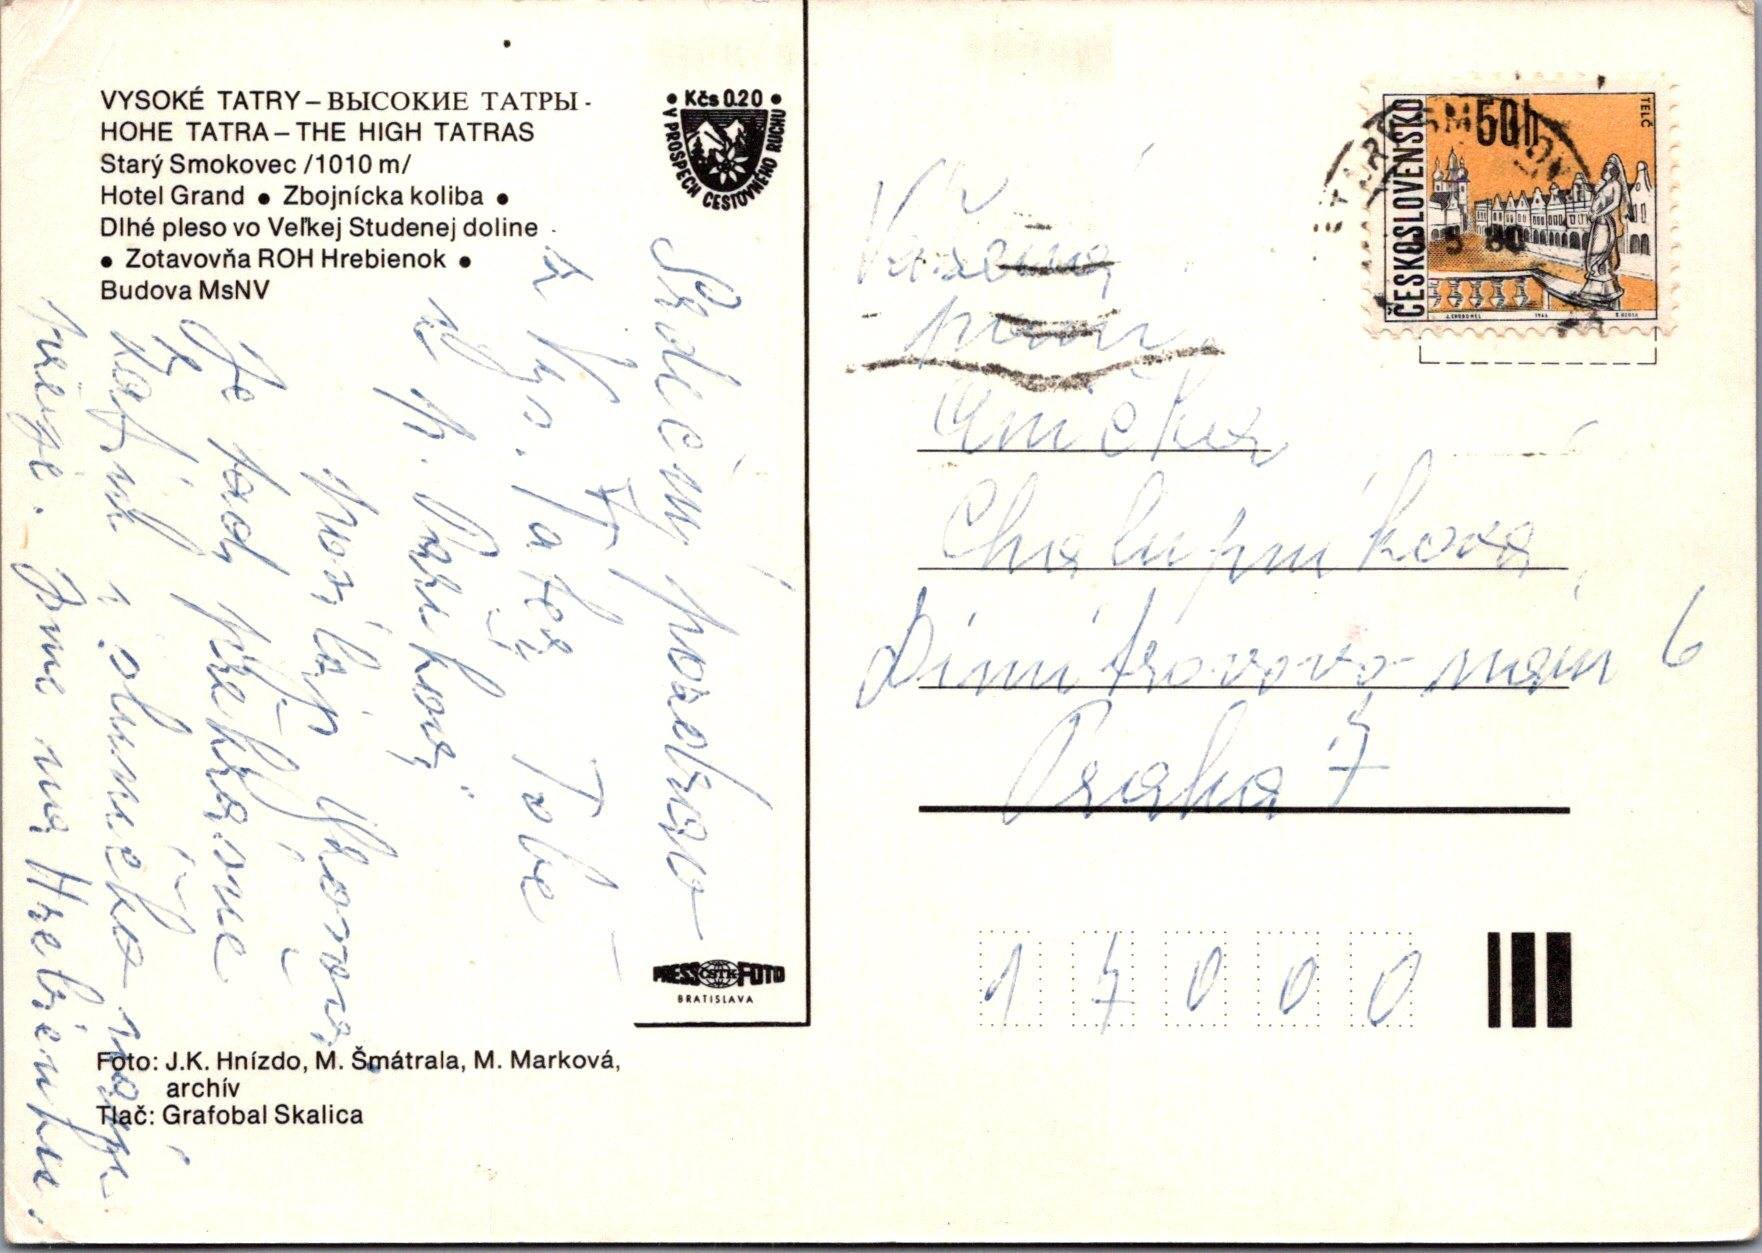 VYSOKÉ TATRY – ВЫСОКИЕ ТАТРЫ -
HOHE TATRA – THE HIGH TATRAS
Starý Smokovec /1010 m/
Hotel Grand ● Zbojnícka koliba ●
Dlhé pleso vo Veľkej Studenej doline
● Zotavovňa ROH Hrebienok ●
Budova MsNV
● Kčs 0.20 ●
V PROSPECH CESTOVNÉHO RUCHU
Srdečný pozdrav
z Vys. Tater Tobě
a p. 
posílají
Je tady překrásně
i sluníčko
hřeje. Jsme na Hrebienku.
PRESS ČSTK FOTO
BRATISLAVA
Foto: J.K. Hnízdo, M. Šmátrala, M. Marková,
archív
Tlač: Grafobal Skalica
ČESKOSLOVENSKO
50h
TELČ
Vážená
paní
Anička
Chalupníková
Dimitrovovo nám 6
Praha 7
17000